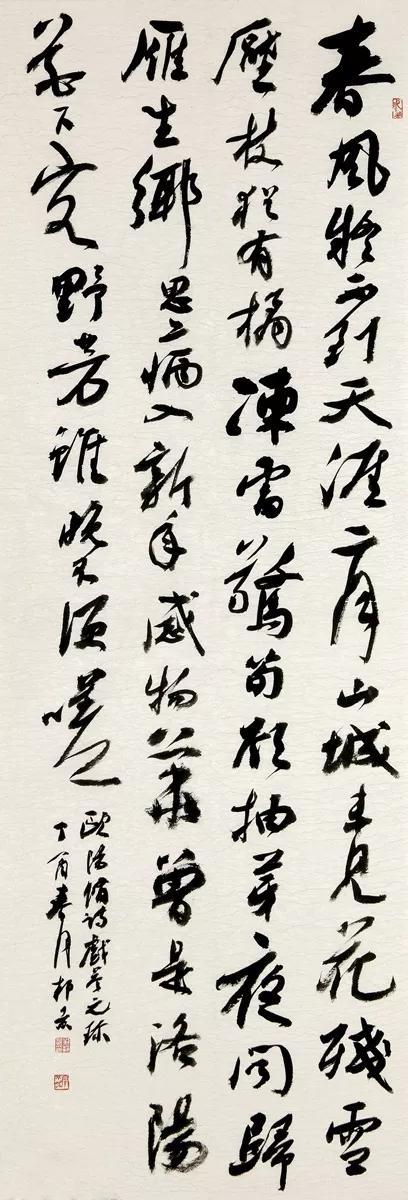 春風疑不到天涯二月山城未見花殘雪
壓枝猶有橘凍雷驚筍欲抽芽夜聞歸
雁生鄉思病入新年感物華曾是洛陽
花下客野芳雖晚不須嗟
歐陽脩詩戲答元珍
丁酉春月